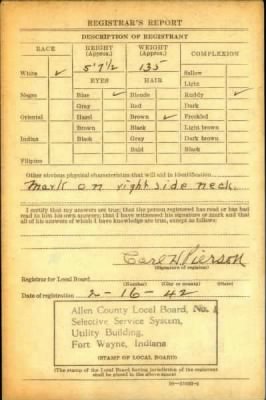 REGISTRAR'S REPORT
DESCRIPTION OF REGISTRANT
RACE HEIGHT (Approx.) WEIGHT (Approx.) COMPLEXION
5' 7 1/2 135
White ✓ Sallow
EYES HAIR Light
Negro Blue ✓ Blonde Ruddy ✓
Gray Red Dark
Oriental Hazel Brown ✓ Freckled
Brown Black Light brown
Indian Black Gray Dark brown
Bald Black
Filipino
Other obvious physical characteristics that will aid in identification
Mark on right side neck.
I certify that my answers are true; that the person registered has read or has had
read to him his own answers; that I have witnessed his signature or mark and that
all of his answers of which I have knowledge are true, except as follows:
Carl W Pierson
(Signature of registrar)
Registrar for Local Board
(Number) (City or county) (State)
Date of registration 2-16-42
Allen County Local Board, No. 1
Selective Service System,
Utility Building,
Fort Wayne, Indiana
(STAMP OF LOCAL BOARD)
(The stamp of the Local Board having jurisdiction of the registrant
shall be placed in the above space)